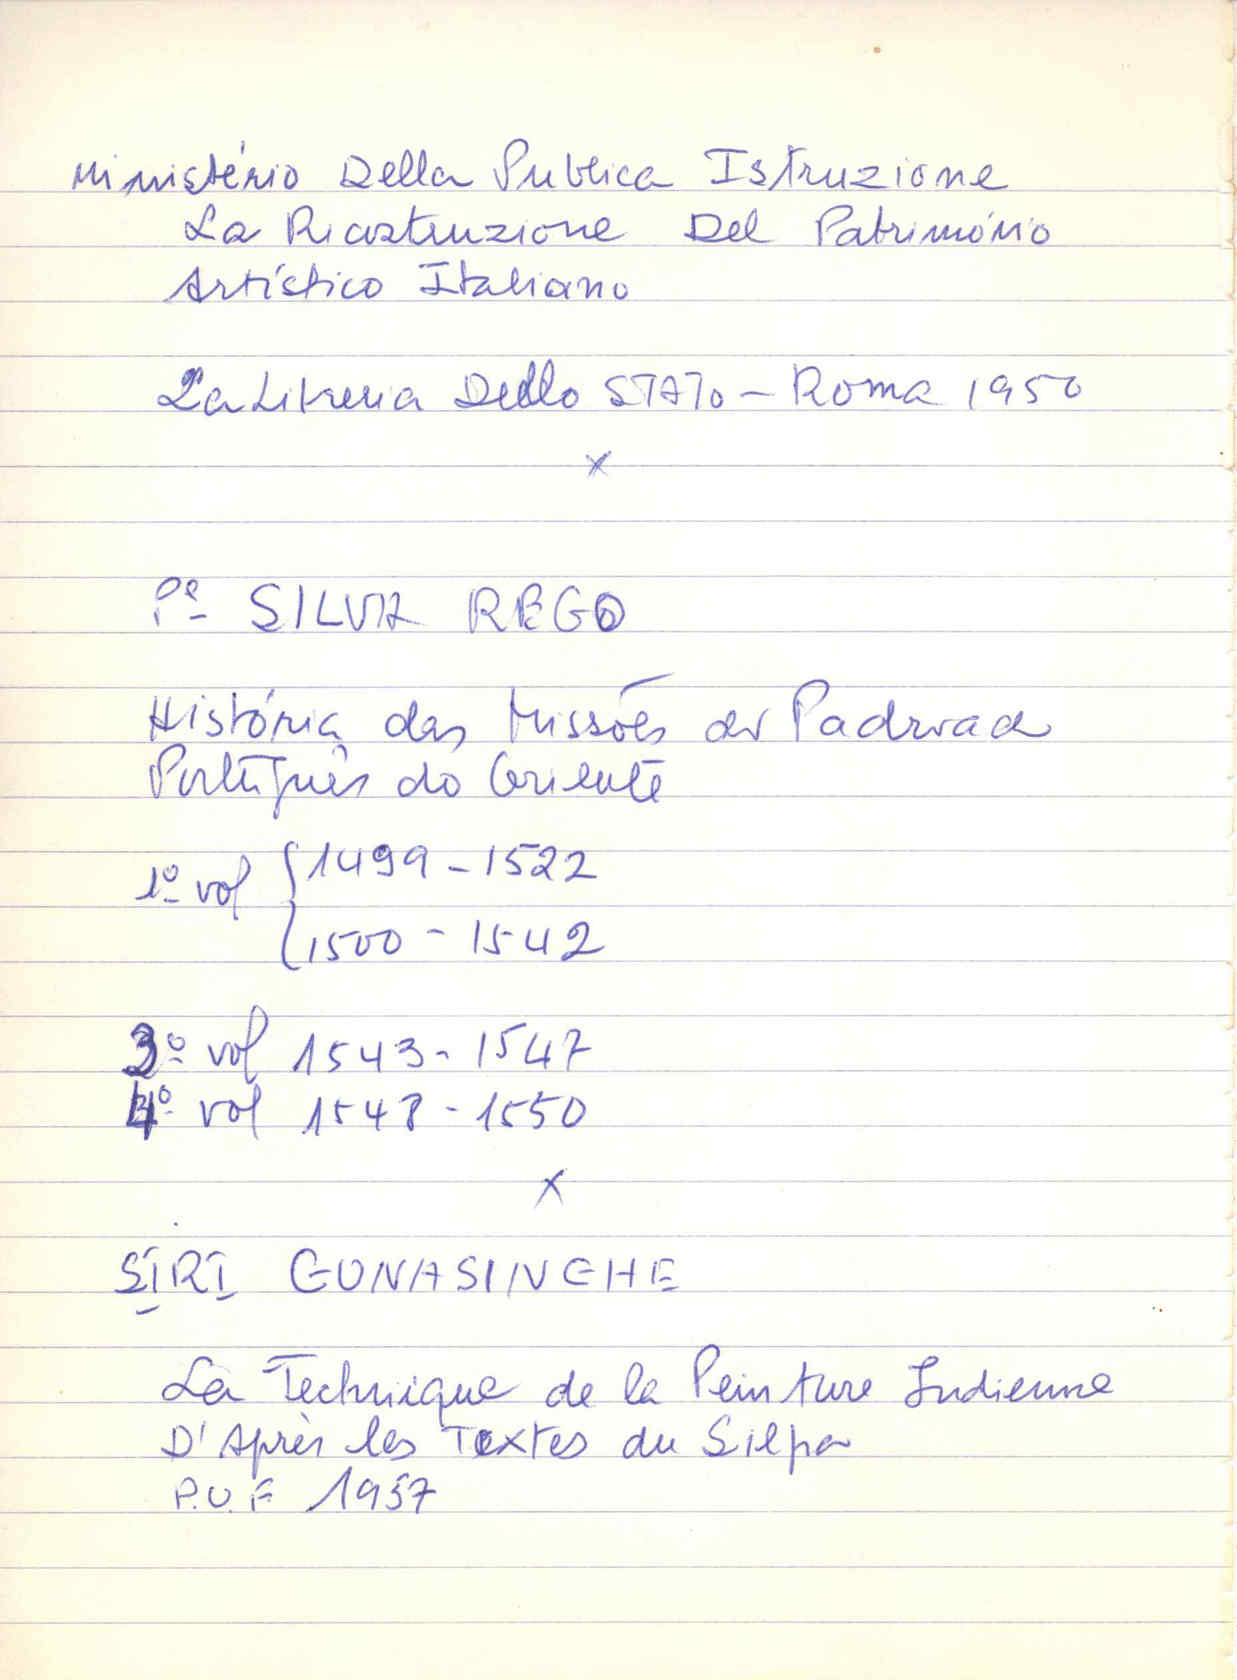 Ministério Della Publica Istruzione
La Ricostruzione Del Património
Artístico Italiano
La Libreria Dello STATO - Roma 1950
x
Pe SILVA REGO
História das Missões do Padroado
Português do Oriente
1º vol { 1499 - 1522
1500 - 1542
3º vol 1543 - 1547
4º vol 1548 - 1550
x
SIRI GUNASINGHE
La Technique de la Peinture Indienne
D'Après les Textes du Silpa
P.U.F 1957